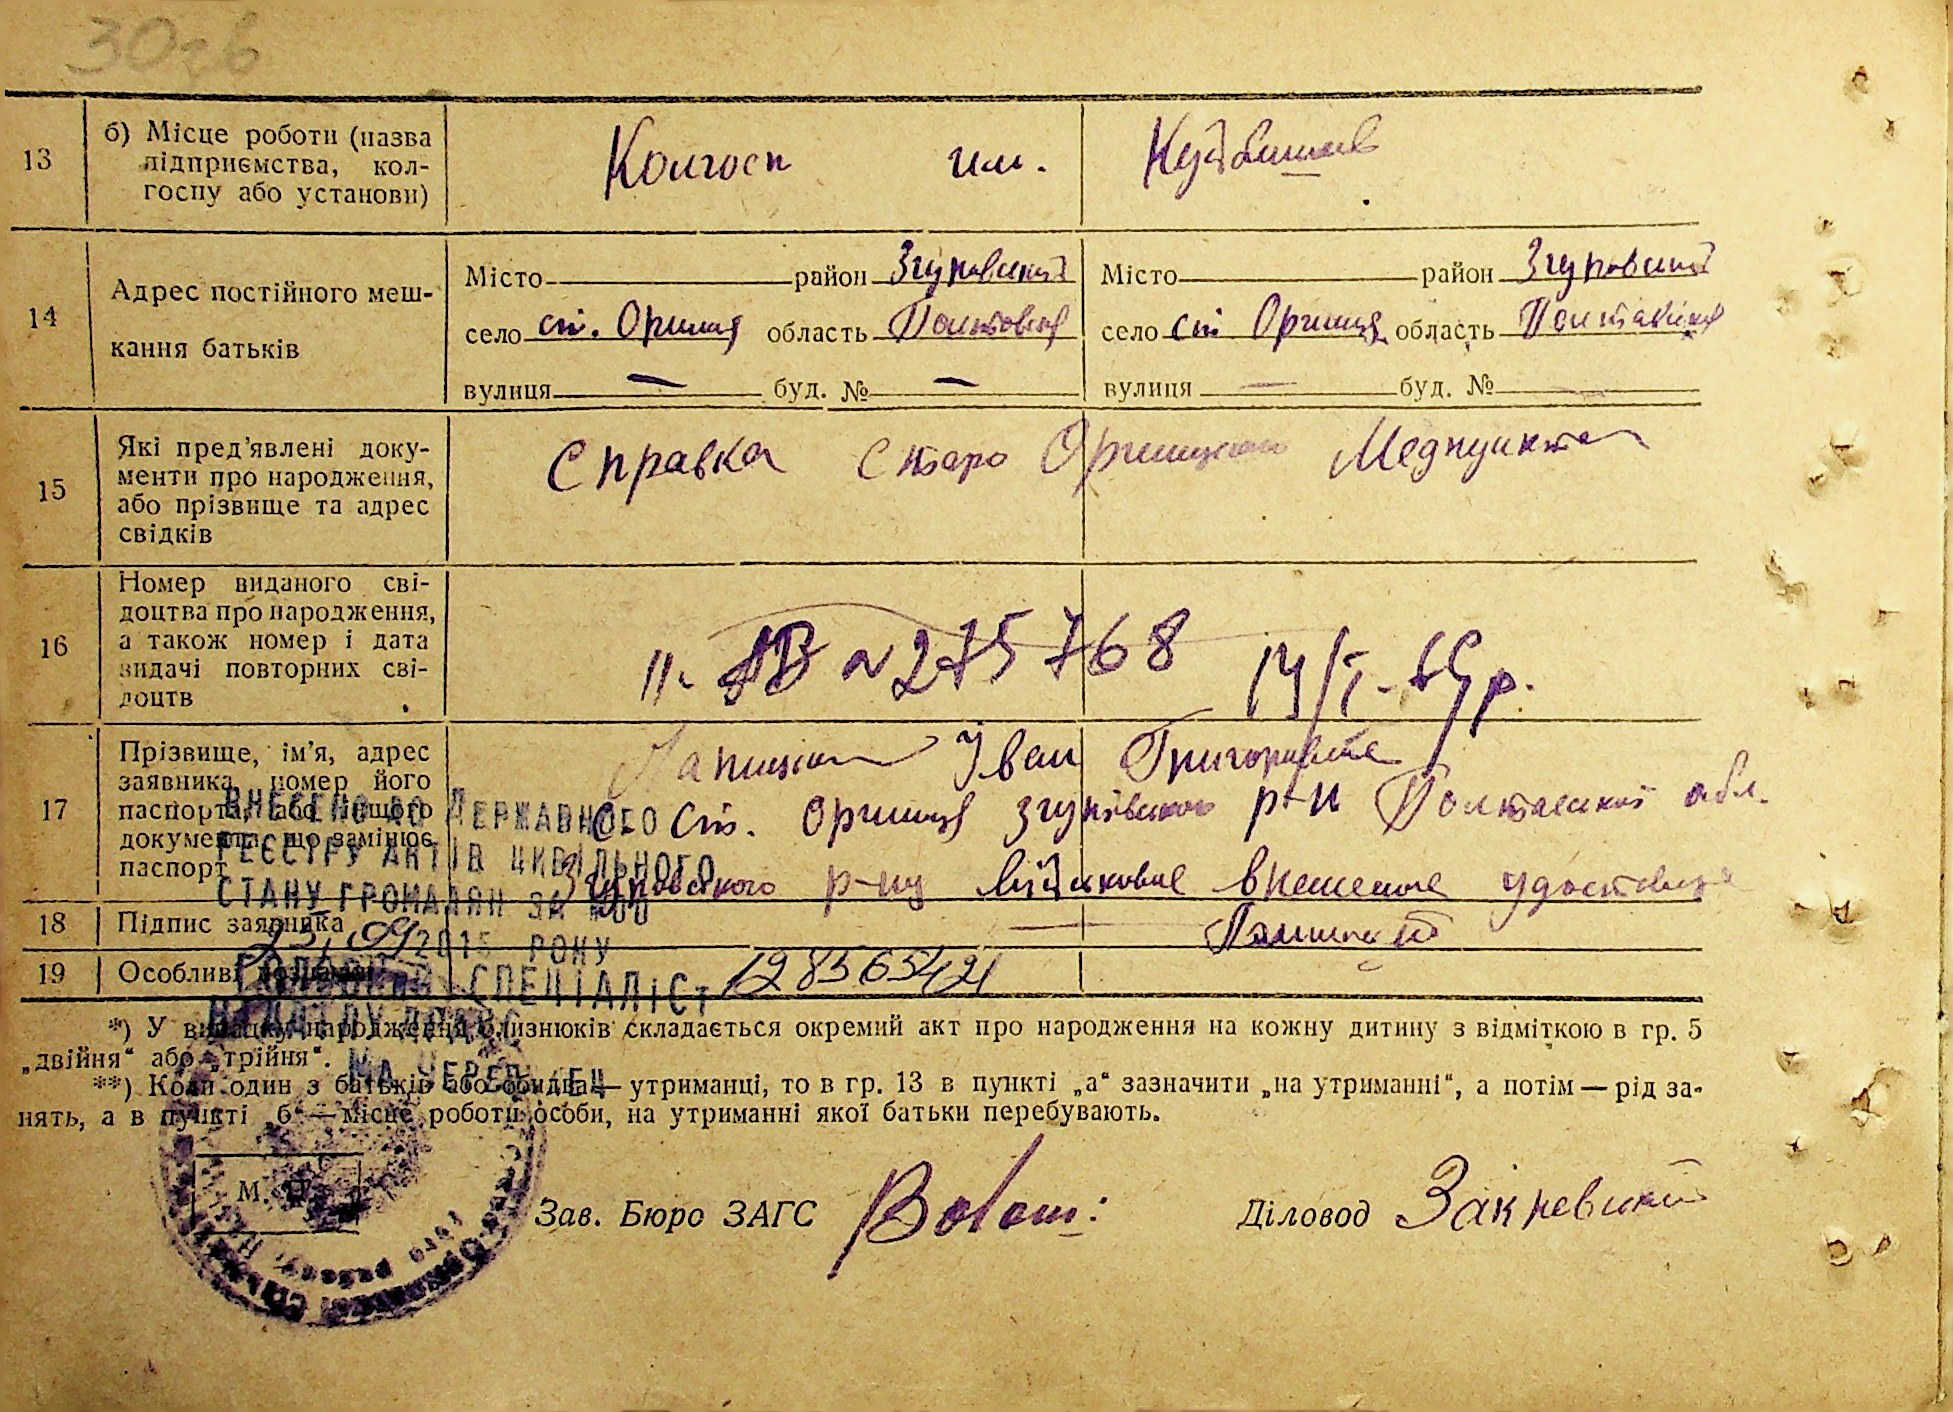 30зв
13 б) Місце роботи (назва підприємства, колгоспу або установи) Колгосп им. Куйбишев
14 Адрес постійного мешкання батьків
Місто район Згуровский Місто район Згуровский
село ст. Оржиця область Полтовска село ст Оржиця область Полтавська
вулиця — буд. № — вулиця — буд. №
15 Які пред'явлені документи про народження, або прізвище та адрес свідків Справка Старо Оржицкои Медпункта
16 Номер виданого свідоцтва про народження, а також номер і дата видачі повторних свідоцтв
№ 275768
17 Прізвище, ім'я, адрес заявника, номер його паспорта, або іншого документа, що замінює паспорт
Іван Григорович
с. ст. Оржиця Згурівського р-н Полтавскої обл.
Згуровського р-ну
18 Підпис заявника
19 Особливі 12856542
ВНЕСЕНО ДО ДЕРЖАВНОГО
РЕЄСТРУ АКТІВ ЦИВІЛЬНОГО
СТАНУ ГРОМАДЯН ЗА №00
2015 РОКУ
ГОЛОВНИЙ СПЕЦІАЛІСТ
*) У випадку народження близнюків складається окремий акт про народження на кожну дитину з відміткою в гр. 5
„двійня“ або „трійня“.
**) Коли один з батьків або обидва — утриманці, то в гр. 13 в пункті „а“ зазначити „на утриманні“, а потім — рід за-
нять, а в пункті „б“ — місце роботи особи, на утриманні якої батьки перебувають.
М. П.
Зав. Бюро ЗАГС Діловод Закревский